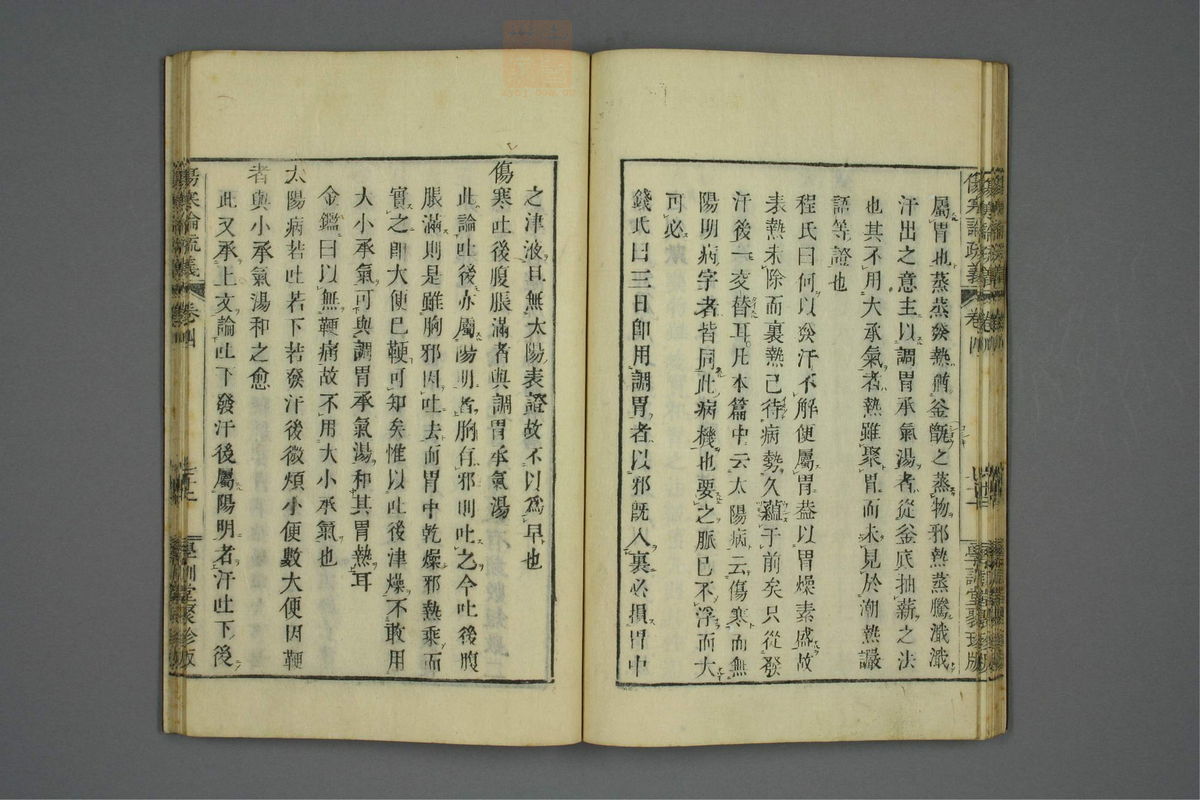 屬胃也蒸蒸發熱猶釜甑之蒸物邪熱蒸騰濈濈
汗出之意主以調胃承氣湯者從釜底抽薪之法
也其不用大承氣者熱雖聚胃而未見於潮熱讝
語等證也
程氏曰何以發汗不解便屬胃葢以胃燥素盛故
表熱未除而裏熱已待病勢久蘊于前矣只從發
汗後一交替耳凡本篇中云太陽病云傷寒而無
陽明病字者皆同此病機也要之脈巳不浮而大
可必
錢氏曰三日卽用調胃者以邪旣入裏必損胃中
之津液且無太陽表證故不以爲早也
傷寒吐後腹脹滿者與調胃承氣湯
此論吐後亦屬陽明者胸有邪則吐之今吐後腹
脹滿則是雖胸邪因吐去而胃中乾燥邪熱乘而
實之卽大便巳鞕可知矣惟以吐後津燥不敢用
大小承氣可與調胃承氣湯和其胃熱耳
金鑑曰以無鞕痛故不用大小承氣也
太陽病若吐若下若發汗後微煩小便數大便因鞕
者與小承氣湯和之愈
此又承上文論吐下發汗後屬陽明者汗吐下後
傷寒論疏義 卷四 學訓堂聚珍版